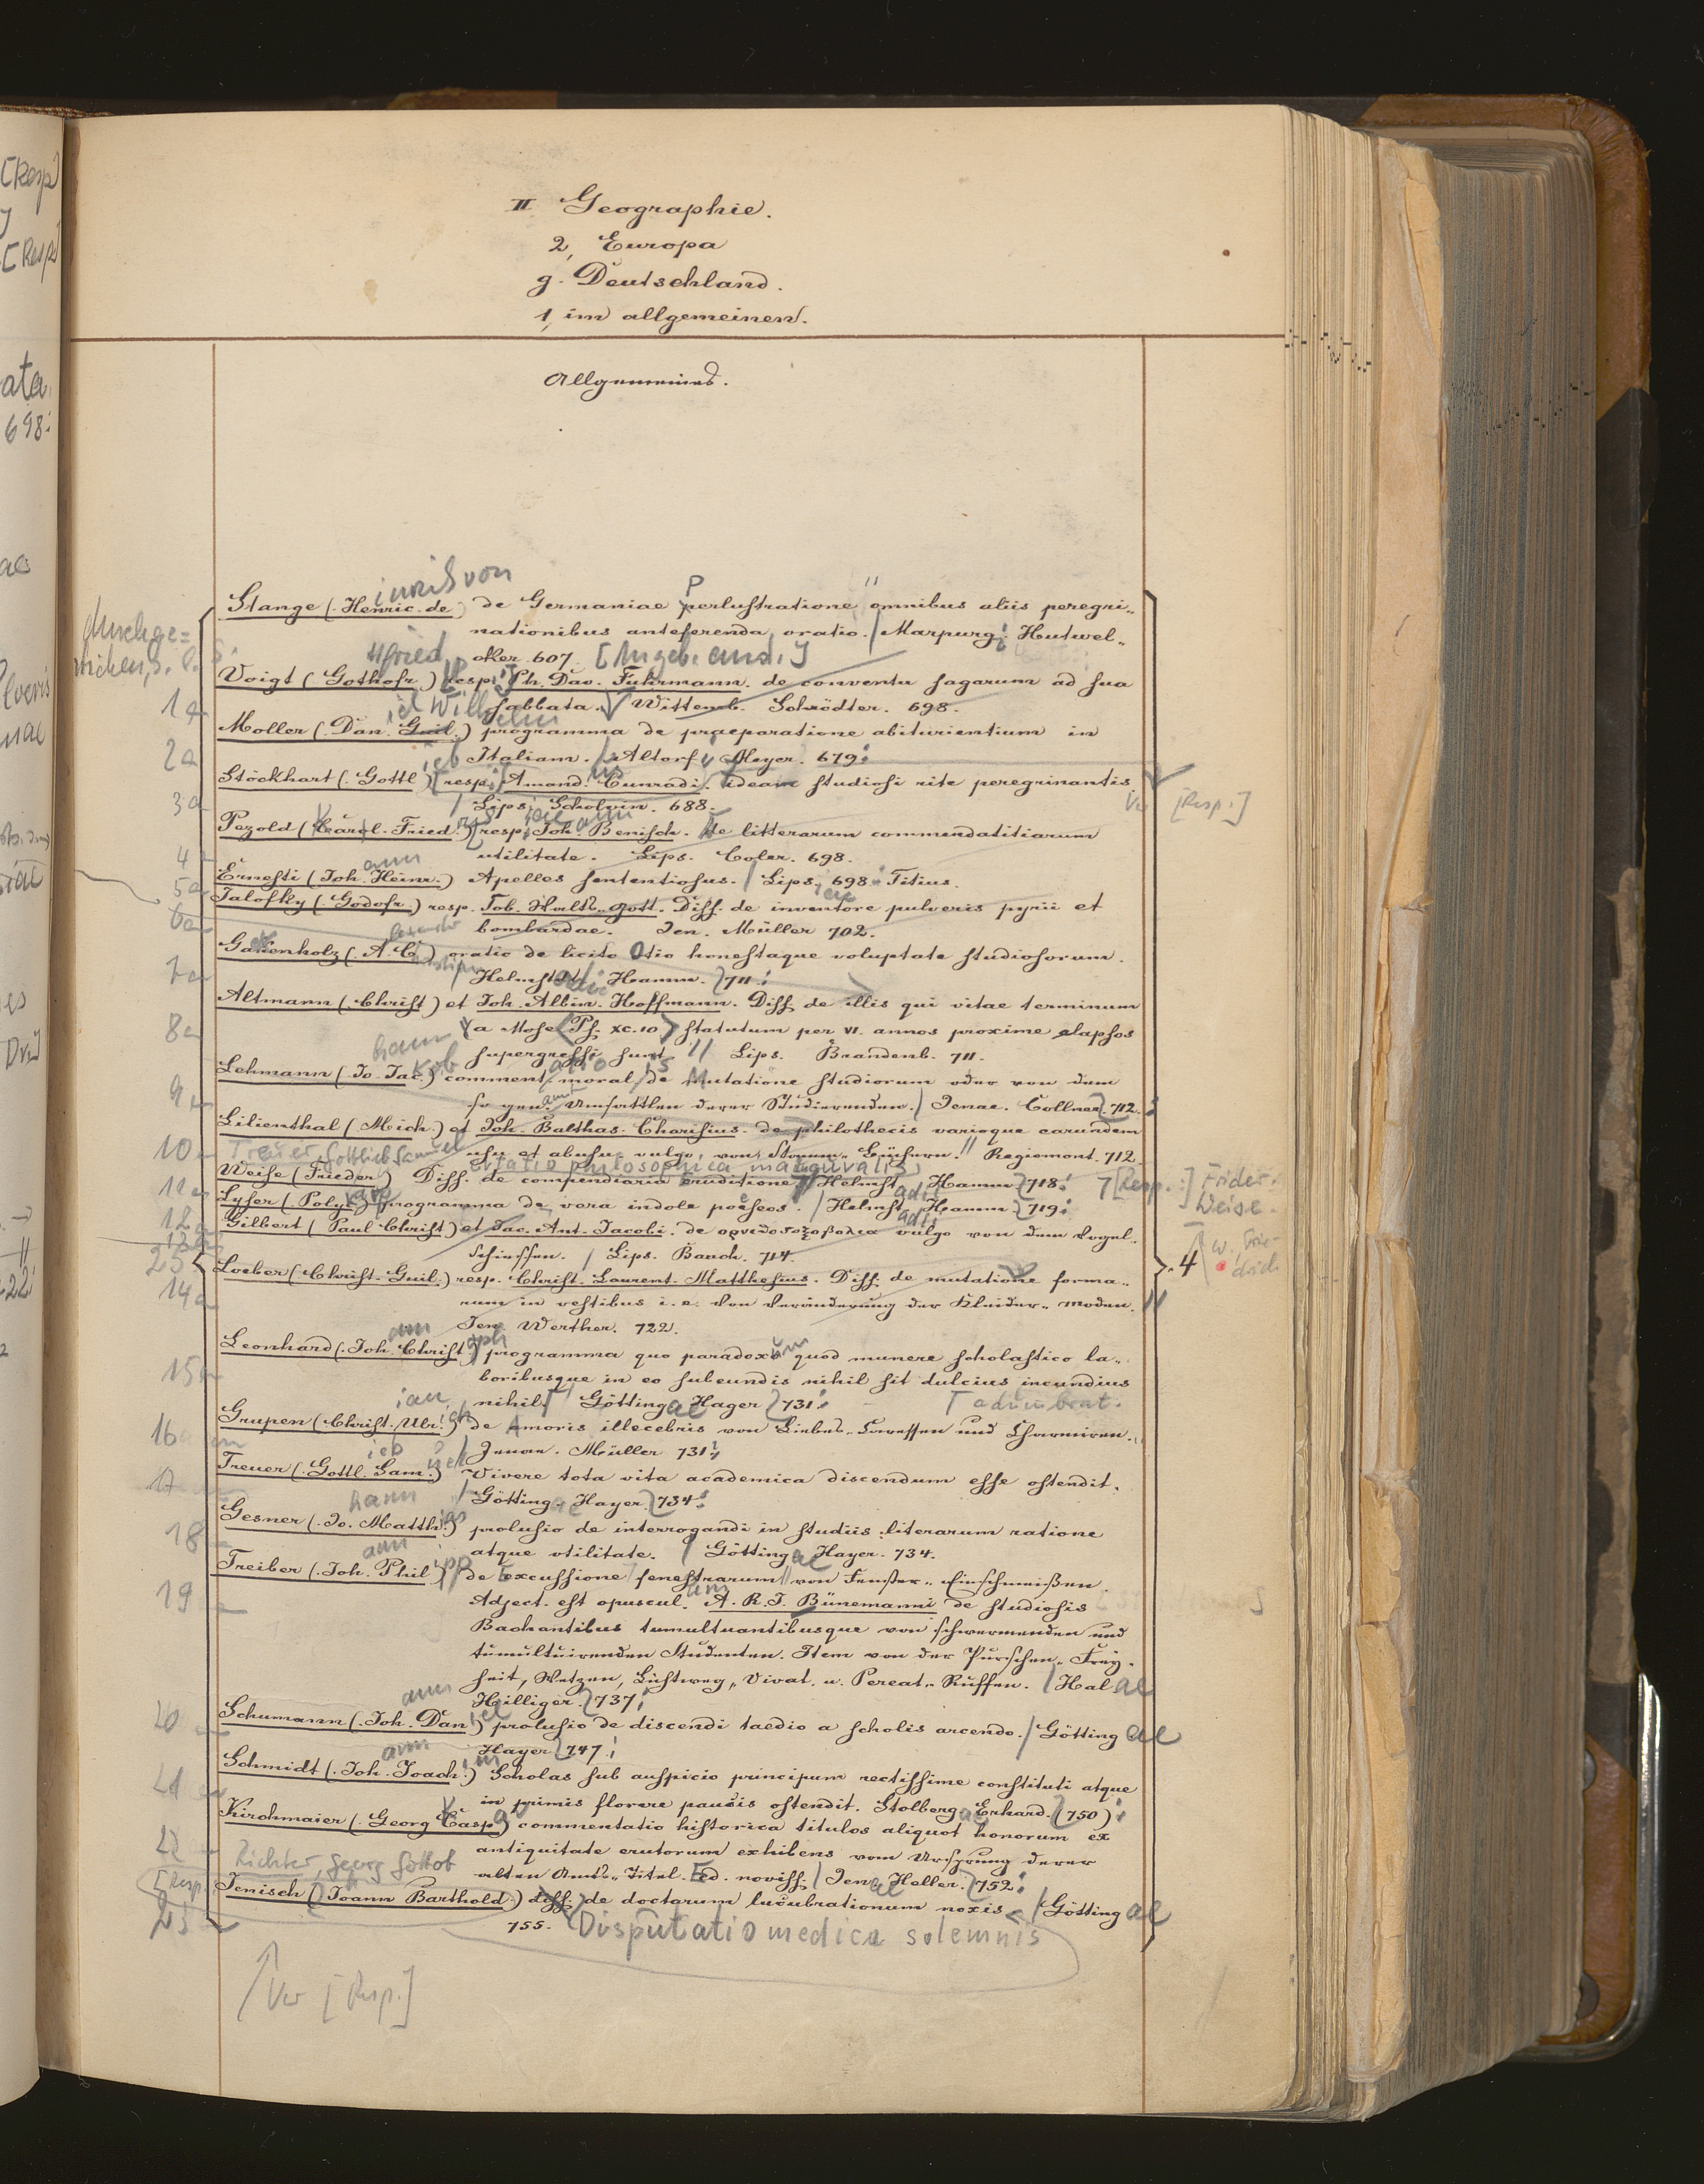 II Geographie.
2, Europa
g. Deutschland.
1, im allgemeinen.
Allgemeines.
Stange (Henric. de) de Germaniae perlustratione omnibus aliis peregri-
nationibus anteferenda, oratio. Marpurg. Hutwel-
cker 607. [Angeb. and.]
Voigt (Gothofr.) resp. Ph. Dav. Fuhrmann. de conventu sagarum ad sua
1a sabbata. Wittemb. Schrödter. 698.
Moller (Dan. Guil.) programma de praeparatione abiturientium in
2a Italiam. Altorf. Meyer. 679.
Stöckhart (Gottl) resp. Amand. Cunradi. ideam studiosi rite peregrinantis
3a Lips. Scholvin. 688. [Resp.]
Pezold (Carol. Fried.) resp. Joh. Benisch. de litterarum commendatitiarum
4 utilitate. Lips. Coler. 698.
Ernesti (Joh. Heinr.) Apelles sententiosus. Lips. 698. Titius.
5a
Talofky (Godofr.) resp. Tob. Gott. Diss. de inventore pulveris pyrii et
6a bombardae. Jen. Müller 702.
Gakenholz (A. C.) oratio de licito Otio honestaque voluptate studiosorum.
7a Helmst. Hamm. 711.
Altmann (Christ) et Joh. Albin. Hoffmann. Diss. de illis qui vitae terminum
8a a Mose (Ps. XC.10) statutum per VI. annos proxime elapsos
supergressi sunt Lips. Brandenb. 711.
Lehmann (Jo. Jac.) comment. moral. de Mutatione studiorum oder von dem
9 so gen. Umsattlen derer Studierenden. Jenae. Collner. 712.
Lilienthal (Mich.) et Joh. Balthas. Charisius. de philothecis varioque earundem
10 usu et abusu vulgo, von Stamm-Büchern. Regiomont. 712.
Treuer, Gottlieb Samuel
Weise (Frieder.) Diss. de compendiaria eruditione Helmst. Hamm. 718. [Resp.:] Frider. Weise.
11a
Lyser (Polyc.) programma de vera indole poëseos. Helmst. Hamm. 719.
12a
Gilbert (Paul Christ) et Jac. Ant. Jacobi. de ορνιθοτοξοβολια vulgo von dem Vogel-
schiessen. Lips. Bauch. 714. 4
Loeber (Christ. Guil.) resp. Christ. Laurent. Matthesius. Diss. de mutatione forma-
14a rum in vestibus i. e. von Veränderung der Kleider-Moden.
Jen. Werther. 722.
Leonhard (Joh. Christ) programma quo paradoxum quod munere scholastico la-
15a boribusque in eo subeundis nihil sit dulcius iucundius
nihil Göttingae Hager 731. adumbrat.
Grupen (Christ. Ulr.) de Amoris illecebris von Liebes-Caressen und Charmiren.
16a Jenae. Müller 731.
Treuer (Gottl. Sam.) Vivere tota vita academica discendum esse ostendit.
17 Götting. Hayer. 734.
Gesner (Jo. Matth.) prolusio de interrogandi in studiis literarum ratione
18 atque utilitate. Göttingae Hayer. 734.
Treiber (Joh. Phil) de Excussione fenestrarum von Fenster-Einschmeißen.
19 Adject. est opuscul. A. R. J. Bünemanni de studiosis
Bachantibus tumultuantibusque von schwermenden und
tumultuirenden Studenten. Item von der Purschen-Frey-
heit, Wetzen, Lichtweg, Vivat. u. Pereat-Ruffen. Halae
Hilliger. 737.
Schumann (Joh. Dan) prolusio de discendi taedio a scholis arcendo. Göttingae
20 Hayer 747.
Schmidt (Joh. Joach.) Scholas sub auspicio principum rectissime constituti atque
21 in primis florere paucis ostendit. Stolberg. Erhard. (750)
Kirchmaier (Georg Casp) commentatio historica titulos aliquot honorum ex
22 antiquitate erutorum exhibens vom Ursprung derer
Richter, Georg Gottlob alten Amts-Titel. Ed. noviss. Jenae Heller. 752.
[Resp.
Jenisch (Joann Barthold) diss. de doctarum lucubrationum noxis Göttingae
23 755. Disputatio medica solemnis
[Resp.]